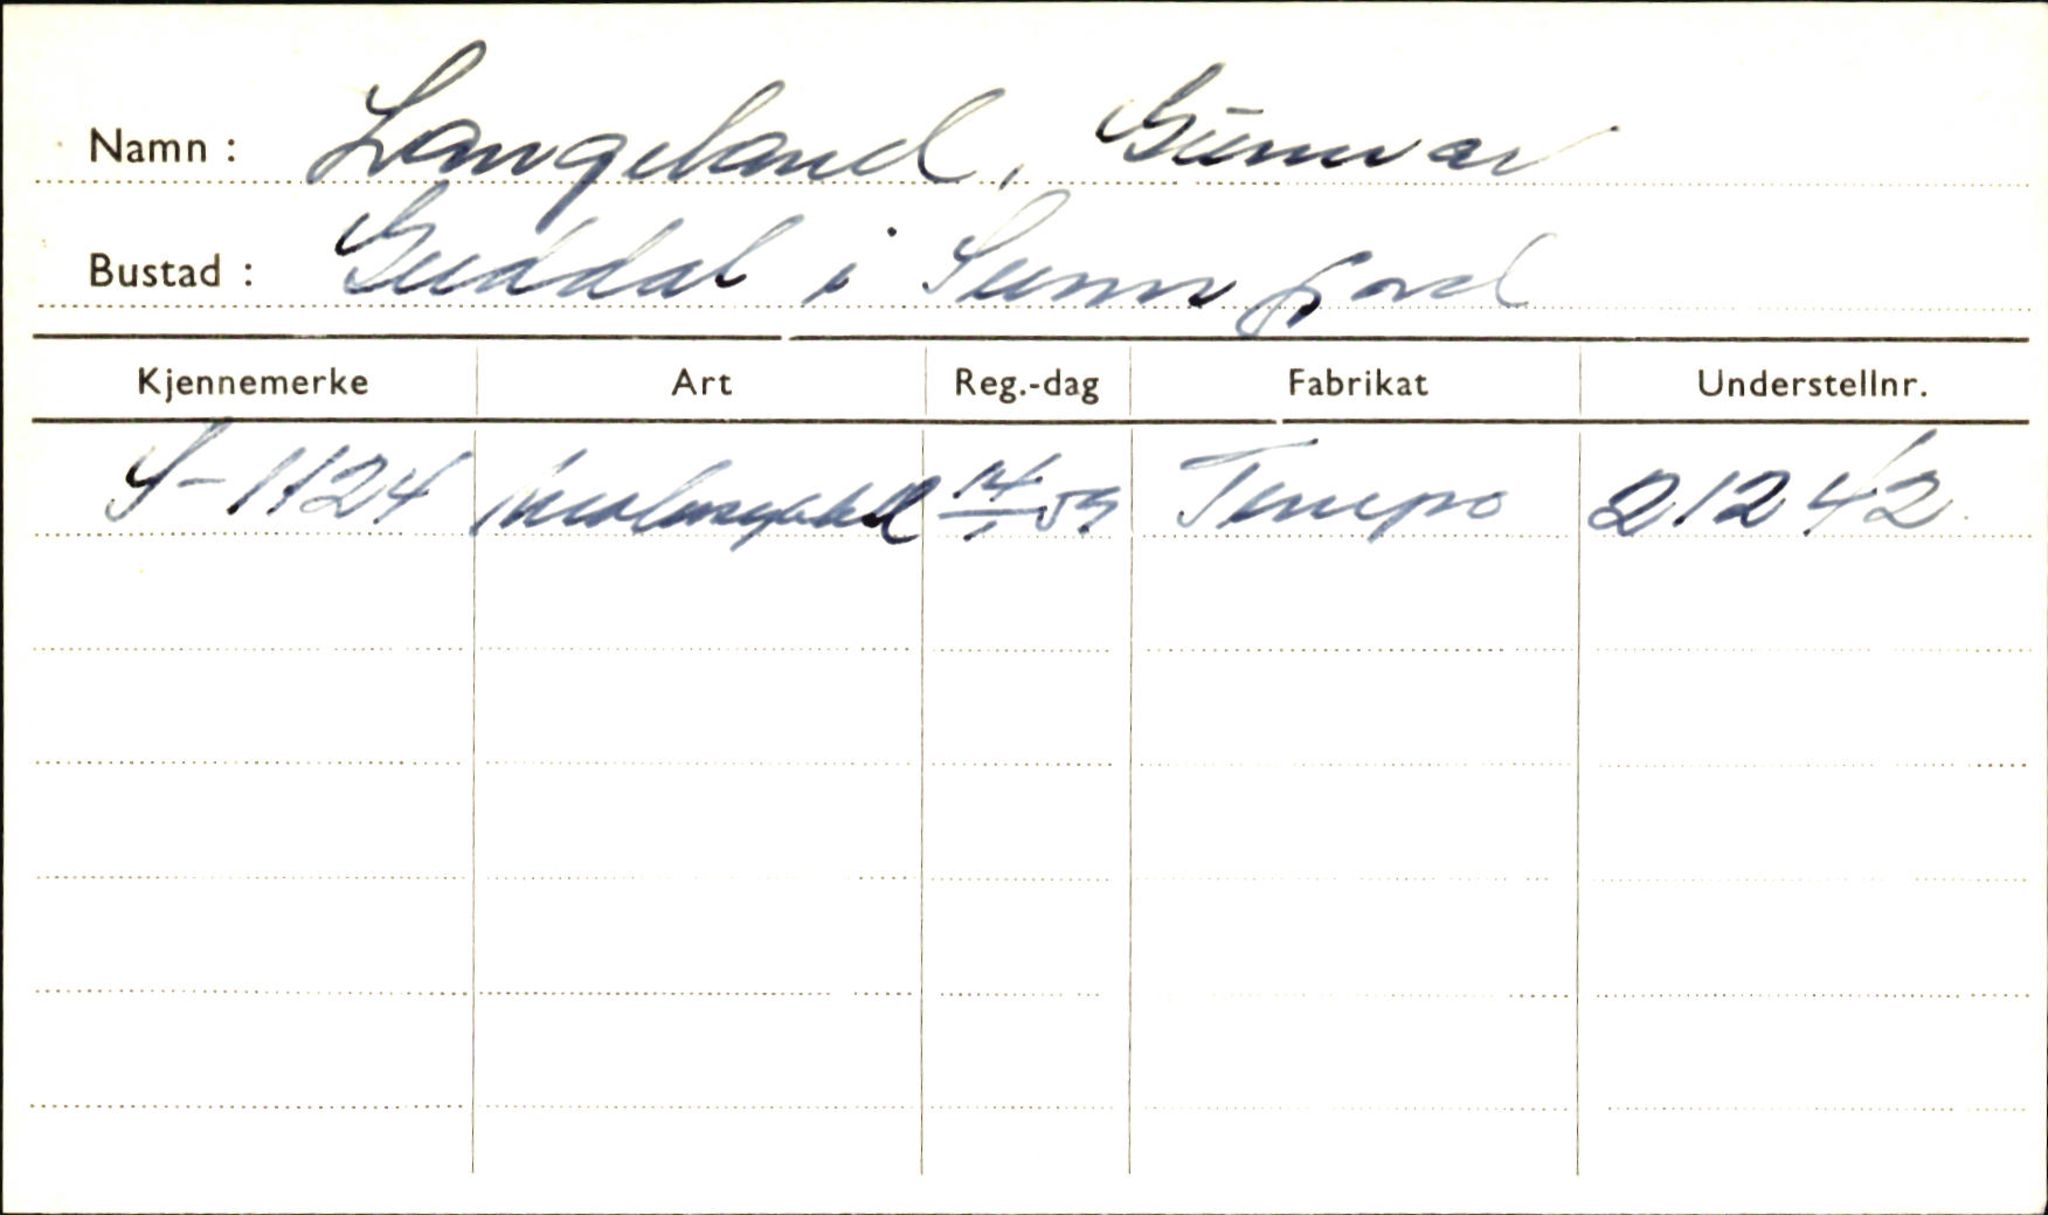 Namn : Langeland, Gunnvar
Bustad : Guddal i Sunnfjord
Kjennemerke Art Reg.-dag Fabrikat Understellnr.
S-1124 14/1 59 Tempo 21242